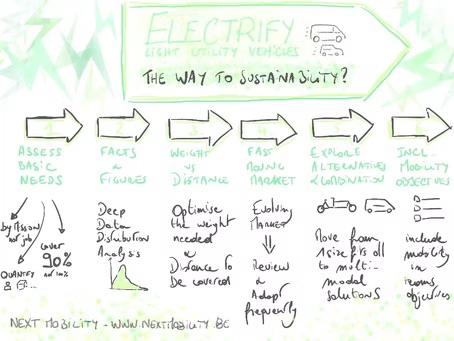 ELECTRIFY
LIGHT UTILITY VEHICLES
THE WAY TO SUSTAINABILITY?
1
2
3
4
5
6
ASSESS
BASIC
NEEDS
by Mission
not job
cover
90%
not 100%
QUANTIFY
&
FACTS
&
FIGURES
Deep
Data
Distribution
Analysis
WEIGHT
VS
DISTANCE
Optimise
the weight
needed
&
Distance to
be covered
FAST
MOVING
MARKET
Evolving
MARKET
Review
&
Adapt
frequently
EXPLORE
ALTERNATIVES
& COMBINATION
Move from
1 size fits all
to multi-
modal
solutions
INCL.
MOBILITY
OBJECTIVES
include
mobility
in
teams
objectives
NEXT MOBILITY - WWW.NEXTMOBILITY.BE